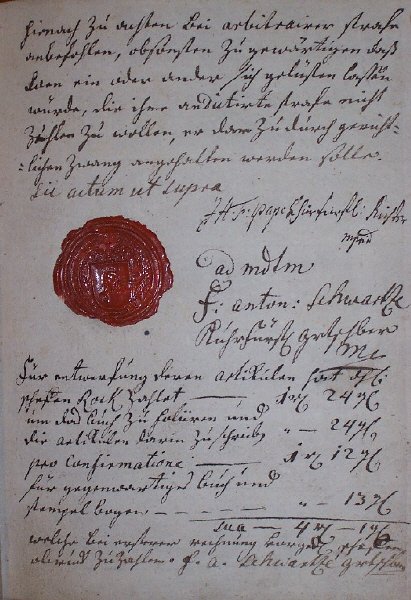 hiernach zu achten bei arbitrairer strafe
anbefohlen, obsonsten zu gewärtigen daß
wan ein oder ander sich gelüsten lassen
würde, die ihme andictirte strafe nicht
zahlen zu wollen, er darzu durch gericht-
lichen Zwang angehalten werden solle.
Sic actum ut Supra
Pape Churfürstl: Richter
mpria
ad mdtm
F: anton: Schwartze
Churfürstl grtschber
Für entwerfung deren artikulen hat
zahlet — 1 24
um das buch zu foliiren und
die artikulen darin zu schreib — " — 24
pro confirmatione — 1 12
für gegenwärtiges buch und
stempelbogen — " — 13
Sua — 4 — 1
welche bei erster rechnung
zu zahlen. F. A. Schwartze grtschbr